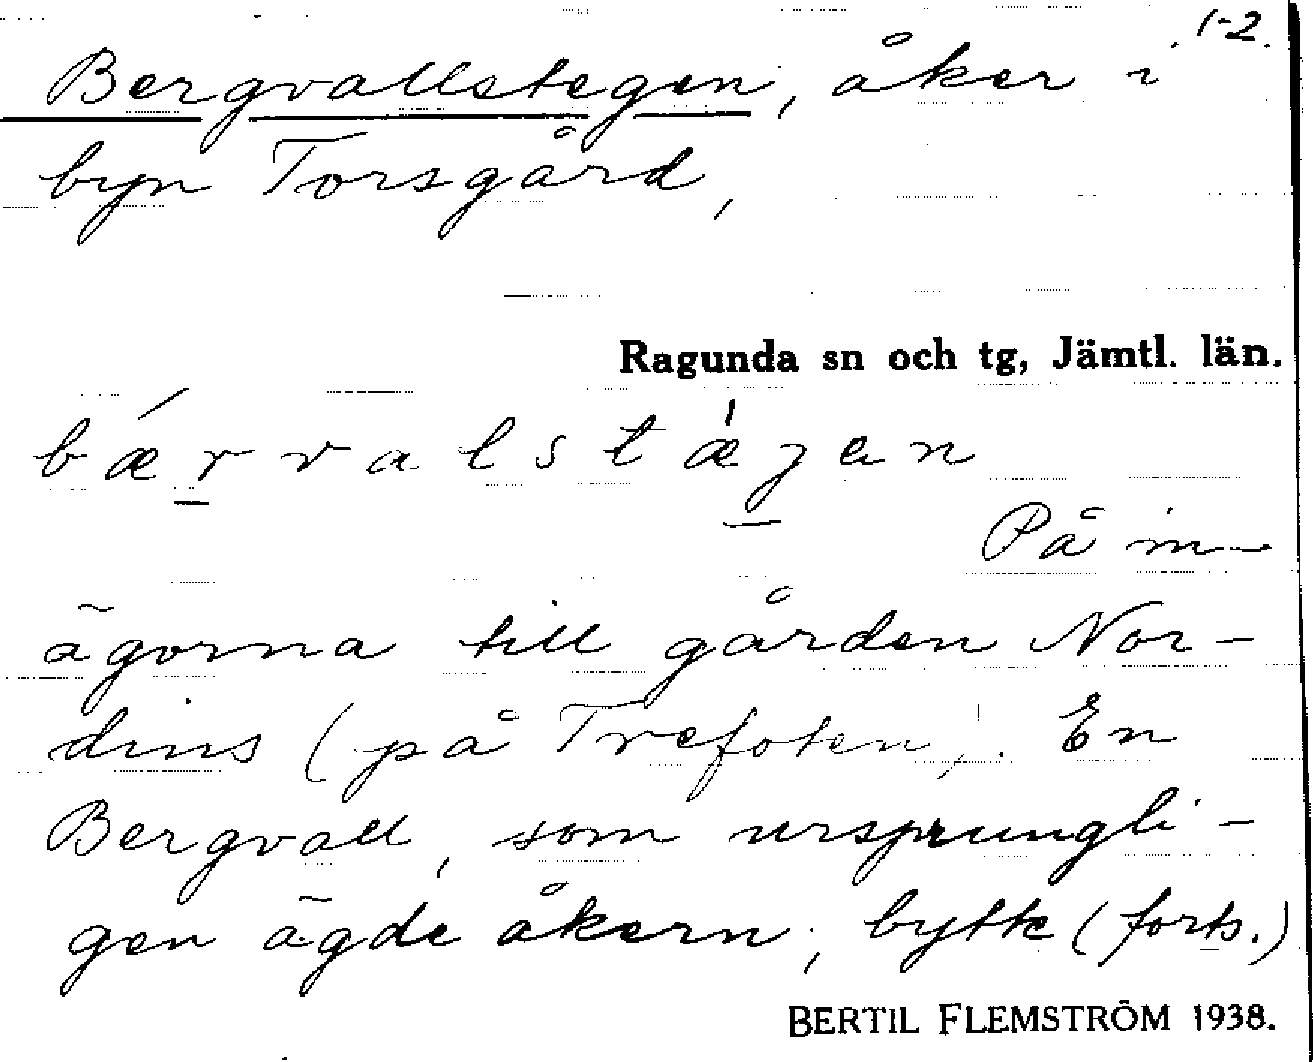 1-2.
Bergvallstegen, åker i
byn Torsgård,
Ragunda sn och tg, Jämtl. län.
bǽrvalstæ̍jen
På in-
ägorna till gården Nor-
dins (på Trefoten). En
Bergvall, som ursprungli-
gen ägde åkern, bytte (forts.)
BERTIL FLEMSTRÖM 1938.